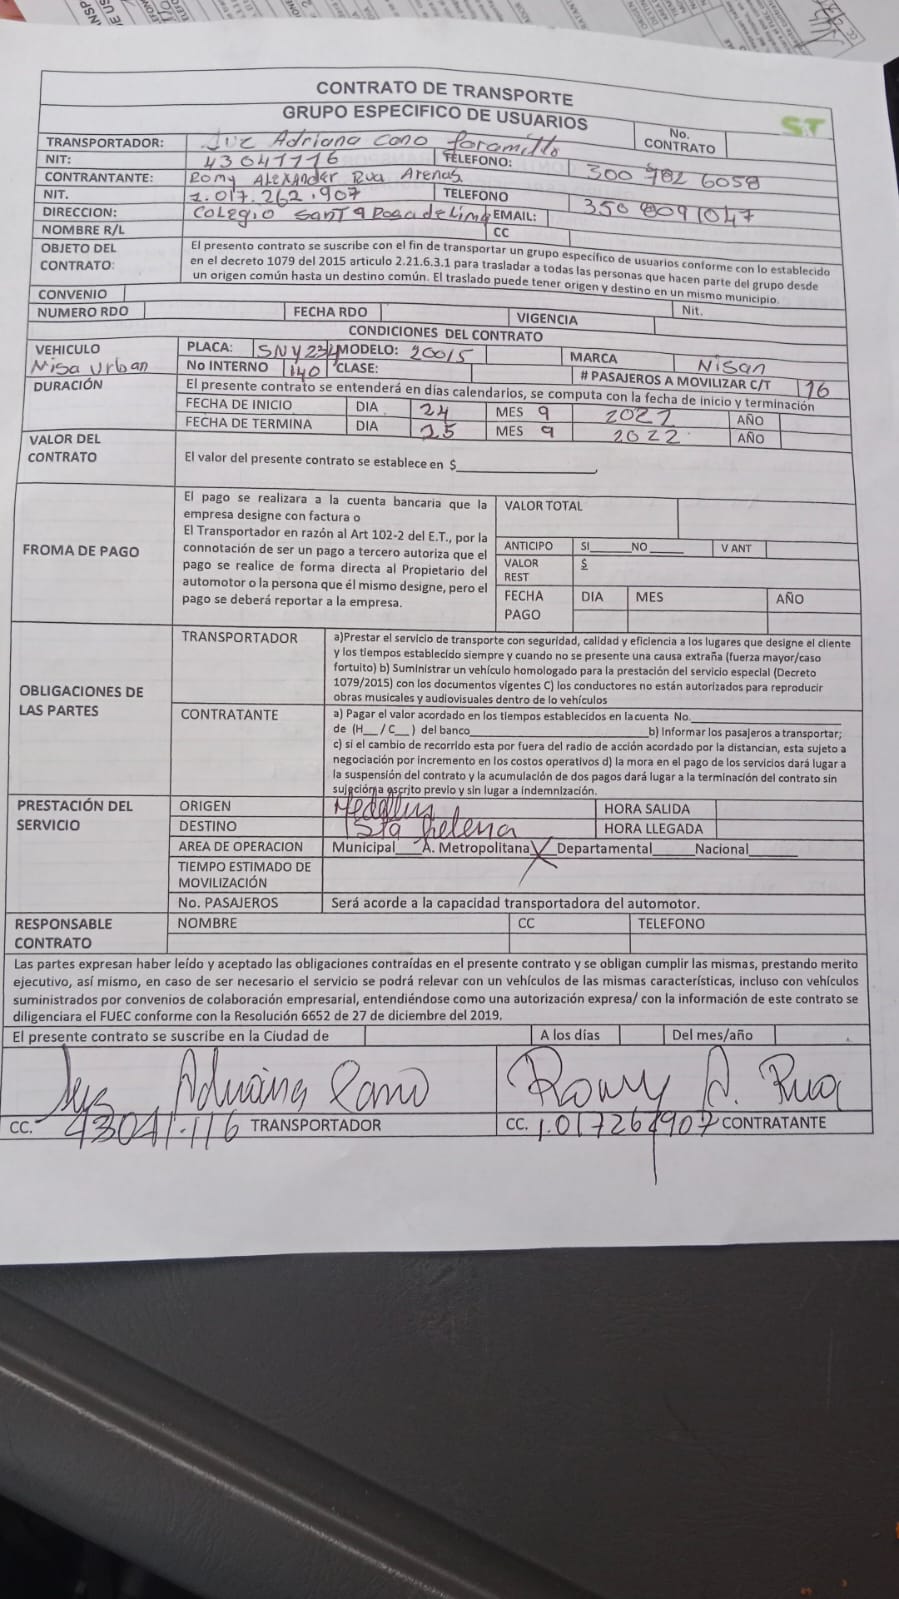 CONTRATO DE TRANSPORTE
GRUPO ESPECIFICO DE USUARIOS
No. CONTRATO
ST
TRANSPORTADOR: Luz Adriana Cano Jaramillo
NIT: 43041116 TELEFONO: 300 782 6058
CONTRANTANTE: Romy Alexander Rua Arenas
NIT. 1.017.262.907 TELEFONO 350 8091047
DIRECCION: Colegio Santa Rosa de Lima EMAIL:
NOMBRE R/L CC
OBJETO DEL CONTRATO: El presento contrato se suscribe con el fin de transportar un grupo especifico de usuarios conforme con lo establecido
en el decreto 1079 del 2015 articulo 2.21.6.3.1 para trasladar a todas las personas que hacen parte del grupo desde
un origen común hasta un destino común. El traslado puede tener origen y destino en un mismo municipio.
CONVENIO Nit.
NUMERO RDO FECHA RDO VIGENCIA
CONDICIONES DEL CONTRATO
VEHICULO PLACA: SNY234 MODELO: 20015 MARCA Nisan
Nisa Urban No INTERNO 140 CLASE: # PASAJEROS A MOVILIZAR C/T 16
DURACIÓN El presente contrato se entenderá en días calendarios, se computa con la fecha de inicio y terminación
FECHA DE INICIO DIA 24 MES 9 2022 AÑO
FECHA DE TERMINA DIA 25 MES 9 2022 AÑO
VALOR DEL CONTRATO El valor del presente contrato se establece en $
FROMA DE PAGO
El pago se realizara a la cuenta bancaria que la
empresa designe con factura o
El Transportador en razón al Art 102-2 del E.T., por la
connotación de ser un pago a tercero autoriza que el
pago se realice de forma directa al Propietario del
automotor o la persona que él mismo designe, pero el
pago se deberá reportar a la empresa.
VALOR TOTAL
ANTICIPO SI____NO____ V ANT
VALOR REST $
FECHA PAGO DIA MES AÑO
OBLIGACIONES DE LAS PARTES
TRANSPORTADOR a)Prestar el servicio de transporte con seguridad, calidad y eficiencia a los lugares que designe el cliente
y los tiempos establecido siempre y cuando no se presente una causa extraña (fuerza mayor/caso
fortuito) b) Suministrar un vehículo homologado para la prestación del servicio especial (Decreto
1079/2015) con los documentos vigentes C) los conductores no están autorizados para reproducir
obras musicales y audiovisuales dentro de lo vehículos
CONTRATANTE a) Pagar el valor acordado en los tiempos establecidos en lacuenta No.____
de (H__/C__) del banco____b) Informar los pasajeros a transportar;
c) si el cambio de recorrido esta por fuera del radio de acción acordado por la distancian, esta sujeto a
negociación por incremento en los costos operativos d) la mora en el pago de los servicios dará lugar a
la suspensión del contrato y la acumulación de dos pagos dará lugar a la terminación del contrato sin
sujecióna escrito previo y sin lugar a indemnización.
PRESTACIÓN DEL SERVICIO
ORIGEN Medellin HORA SALIDA
DESTINO Sta helena HORA LLEGADA
AREA DE OPERACION Municipal____A. Metropolitana X Departamental____Nacional____
TIEMPO ESTIMADO DE MOVILIZACIÓN
No. PASAJEROS Será acorde a la capacidad transportadora del automotor.
RESPONSABLE CONTRATO NOMBRE CC TELEFONO
Las partes expresan haber leído y aceptado las obligaciones contraídas en el presente contrato y se obligan cumplir las mismas, prestando merito
ejecutivo, así mismo, en caso de ser necesario el servicio se podrá relevar con un vehículos de las mismas características, incluso con vehículos
suministrados por convenios de colaboración empresarial, entendiéndose como una autorización expresa/ con la información de este contrato se
diligenciara el FUEC conforme con la Resolución 6652 de 27 de diciembre del 2019.
El presente contrato se suscribe en la Ciudad de A los días Del mes/año
Luz Adriana Cano Romy A. Rua
CC. 43041.116 TRANSPORTADOR CC. 1.017262907 CONTRATANTE